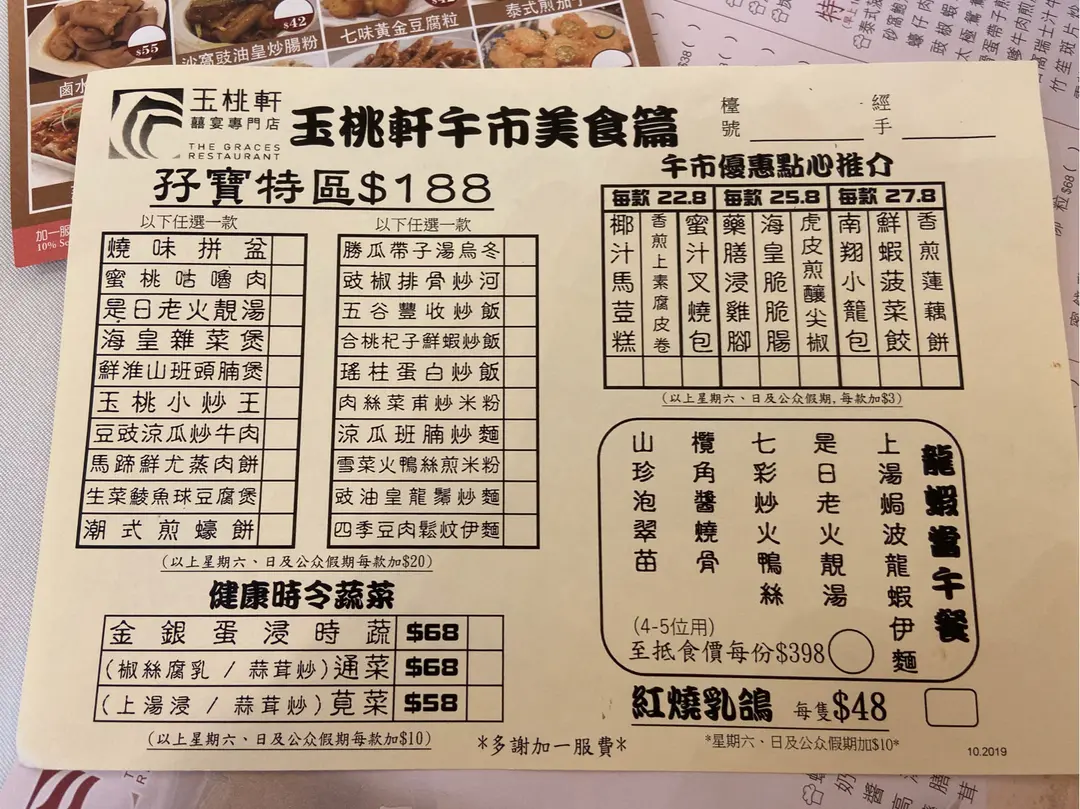 $55
$42
沙窩豉油皇炒腸粉
七味黃金豆腐粒
鹵水
玉桃軒
囍宴專門店
THE GRACES
RESTAURANT
玉桃軒午市美食篇
檯號
經手
孖寶特區$188
以下任選一款
以下任選一款
燒味拼盆
蜜桃咕嚕肉
是日老火靚湯
海皇雜菜煲
鮮淮山班頭腩煲
玉桃小炒王
豆豉涼瓜炒牛肉
馬蹄鮮尤蒸肉餅
生菜鯪魚球豆腐煲
潮式煎蠔餅
勝瓜帶子湯烏冬
豉椒排骨炒河
五谷豐收炒飯
合桃杞子鮮蝦炒飯
瑤柱蛋白炒飯
肉絲菜甫炒米粉
涼瓜班腩炒麵
雪菜火鴨絲煎米粉
豉油皇龍鬚炒麵
四季豆肉鬆炆伊麵
(以上星期六、日及公众假期每款加$20)
健康時令蔬菜
金銀蛋浸時蔬 $68
(椒絲腐乳 / 蒜茸炒)通菜 $68
(上湯浸 / 蒜茸炒)莧菜 $58
(以上星期六、日及公众假期每款加$10)
*多謝加一服費*
午市優惠點心推介
每款 22.8 每款 25.8 每款 27.8
椰汁馬荳糕
香煎上素腐皮卷
蜜汁叉燒包
藥膳浸雞腳
海皇脆脆腸
虎皮煎釀尖椒
南翔小籠包
鮮蝦菠菜餃
香煎蓮藕餅
(以上星期六、日及公众假期, 每款加$3)
龍蝦當午餐
上湯焗波龍蝦伊麵
是日老火靚湯
七彩炒火鴨絲
欖角醬燒骨
山珍泡翠苗
(4-5位用)
至抵食價每份$398
紅燒乳鴿 每隻$48
*星期六、日及公众假期加$10*
10.2019